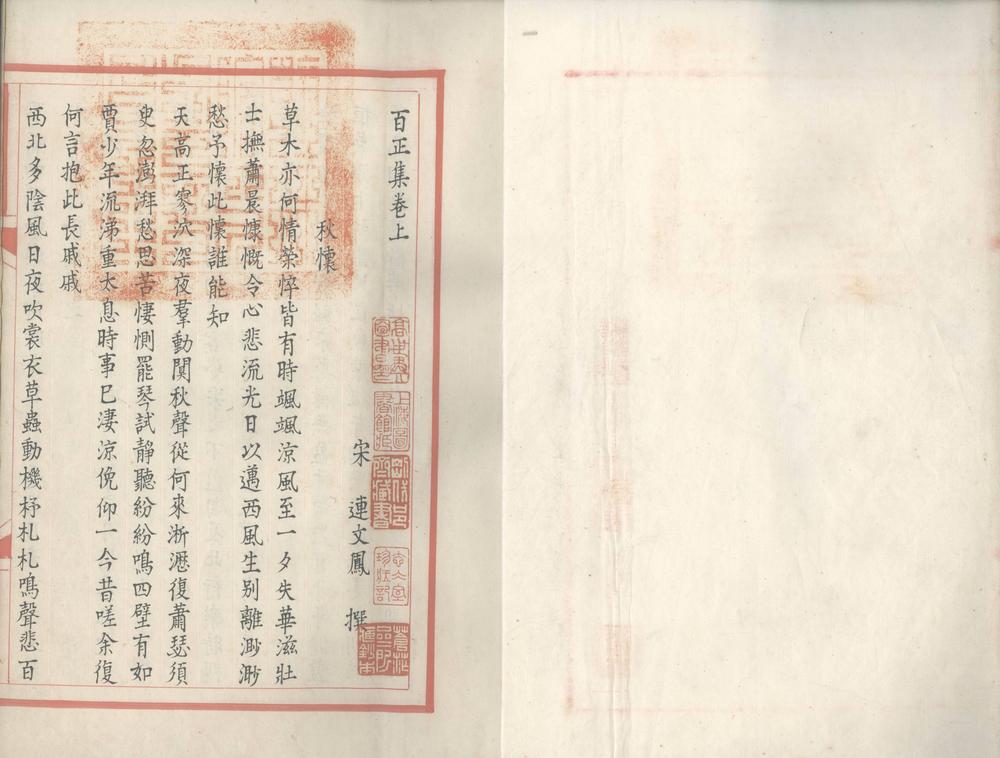 百正集卷上
宋 連文鳳 撰
秋懷
草木亦何情榮悴皆有時颯颯涼風至一夕失華滋壯
士撫蕭晨慷慨令心悲流光日以邁西風生别離渺渺
愁予懷此懷誰能知
天高正寥泬深夜羣動闃秋聲從何來淅瀝復蕭瑟須
臾忽澎湃愁思苦悽惻罷琴試靜聽紛紛鳴四壁有如
賈少年流涕重太息時事已淒涼俛仰一今昔嗟余復
何言抱此長戚戚
西北多陰風日夜吹裳衣草蟲動機杼札札鳴聲悲百
上海圖書館藏